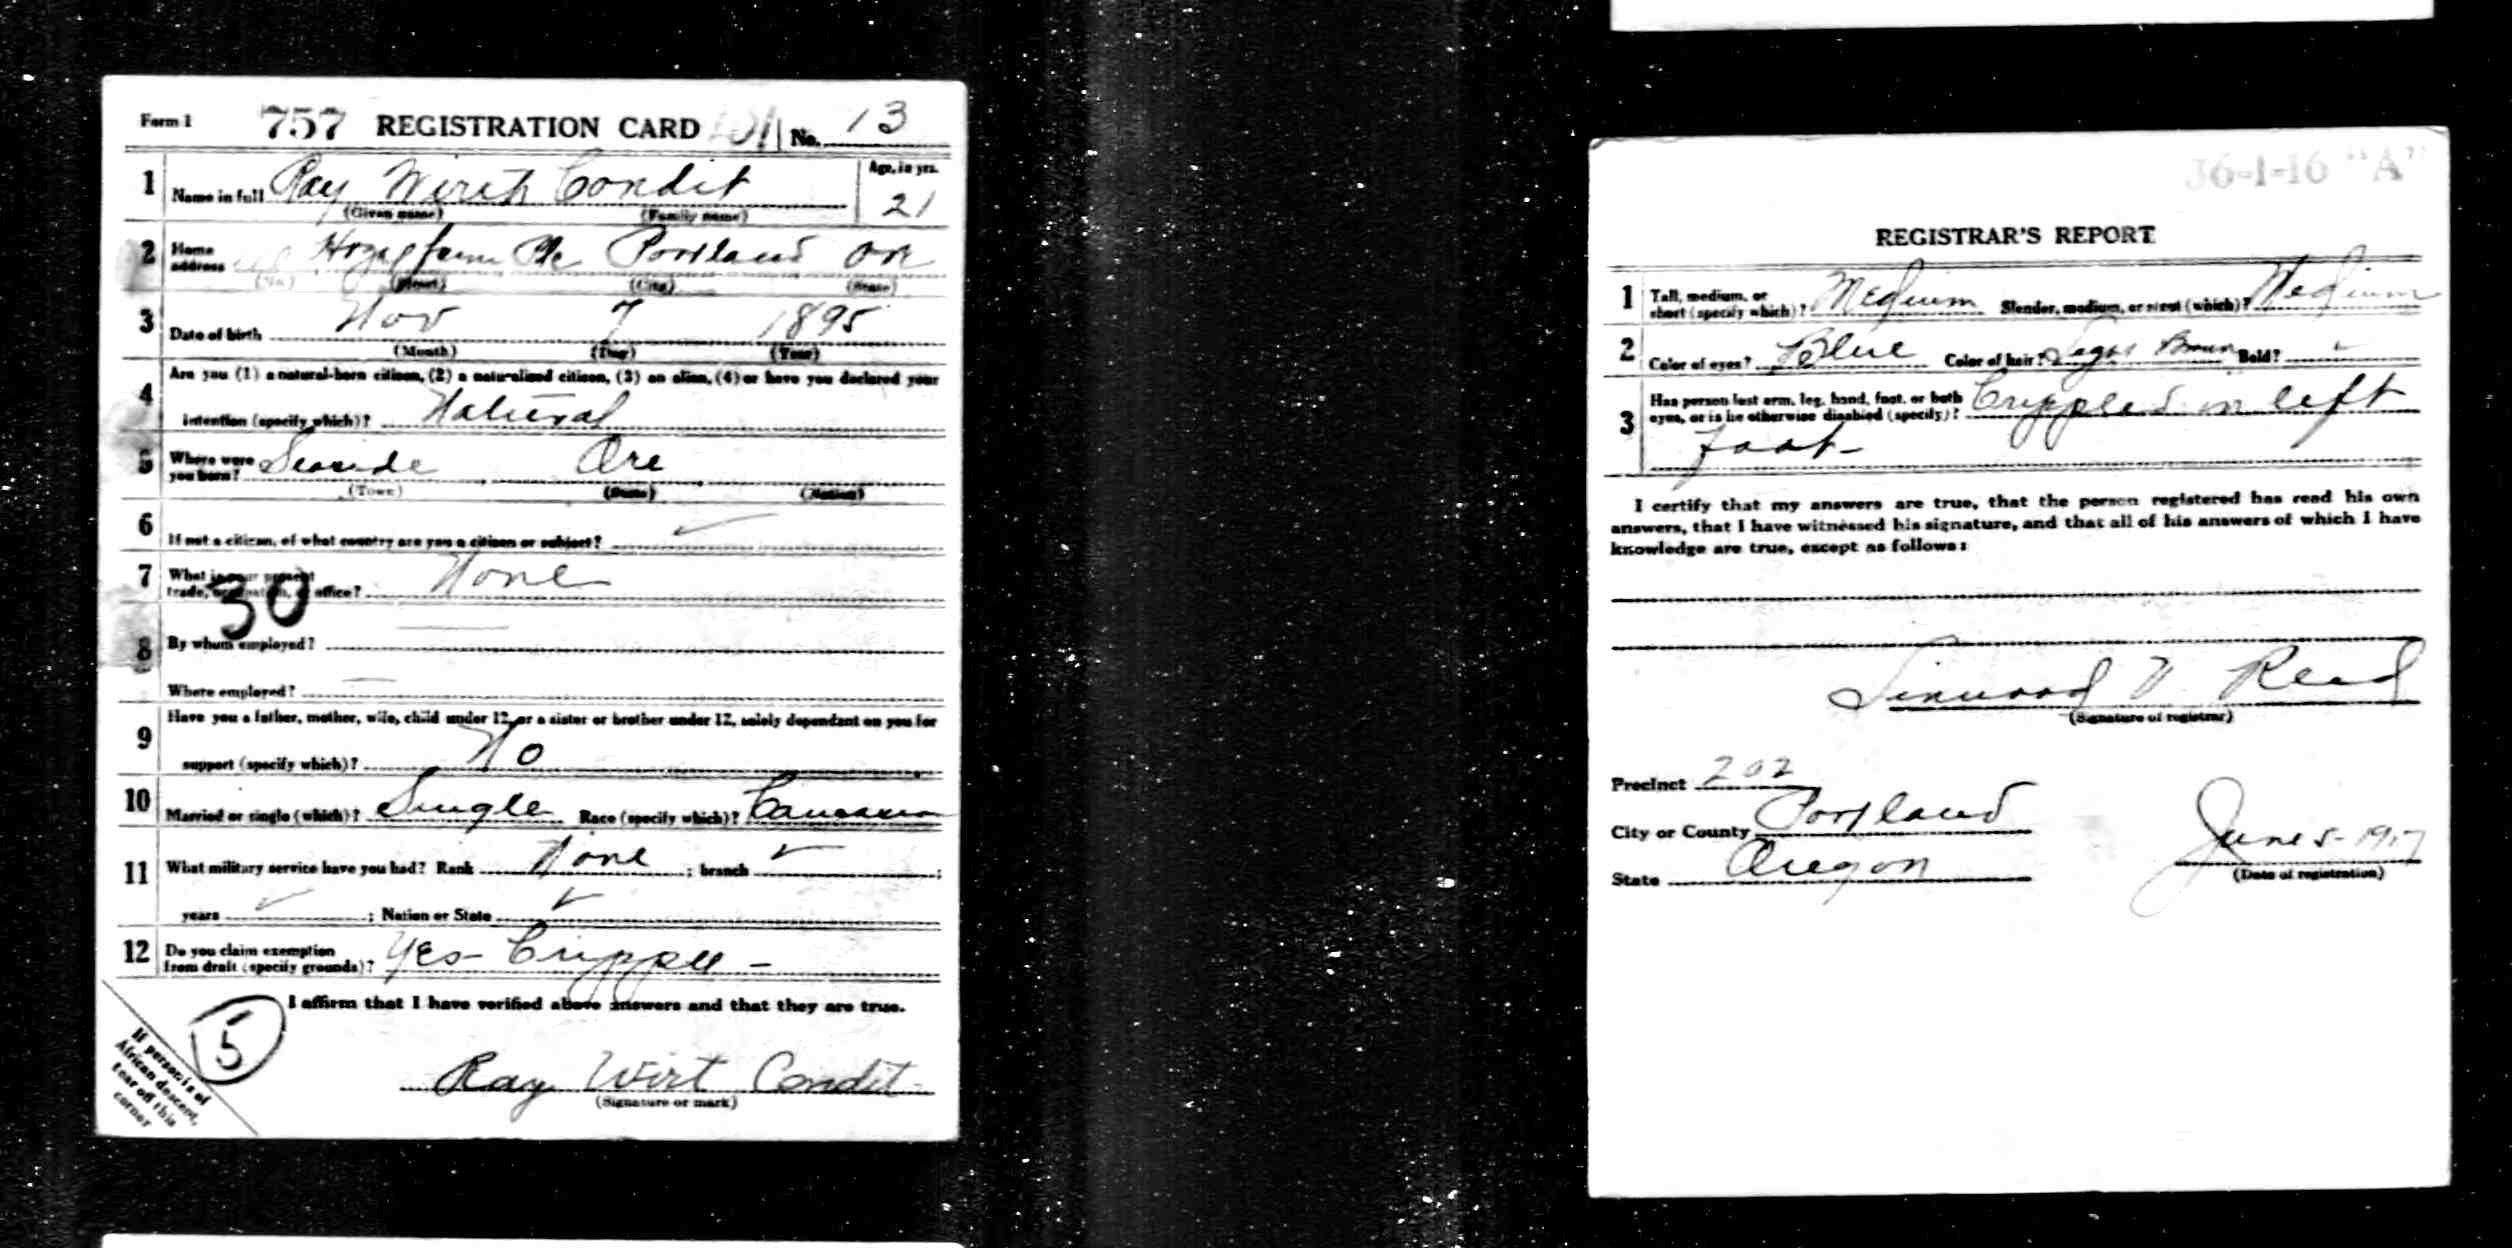 Form 1 757 REGISTRATION CARD No. 13
1 Name in full Ray Wirth Condit Age, in yrs.
(Given name) (Family name) 21
2 Home address Portland Or
(No.) (Street) (City) (State)
3 Date of birth Nov 7 1895
(Month) (Day) (Year)
4 Are you (1) a natural-born citizen, (2) a naturalized citizen, (3) an alien, (4) or have you declared your
intention (specify which)? Natural
5 Where were you born? Seaside Ore
(Town) (State) (Nation)
6 If not a citizen, of what country are you a citizen or subject? ✓
7 What is your present
trade, occupation, or office? None
30
8 By whom employed? —
Where employed? —
9 Have you a father, mother, wife, child under 12, or a sister or brother under 12, solely dependent on you for
support (specify which)? No
10 Married or single (which)? Single Race (specify which)? Caucasian
11 What military service have you had? Rank None ; branch ✓ ;
years ✓ ; Nation or State ✓
12 Do you claim exemption
from draft (specify grounds)? Yes - Cripple -
I affirm that I have verified above answers and that they are true.
5
If person is of
African descent,
tear off this
corner
Ray Wirt Condit
(Signature or mark)
36-1-16 "A"
REGISTRAR'S REPORT
1 Tall, medium, or
short (specify which)? Medium Slender, medium, or stout (which)? Medium
2 Color of eyes? Blue Color of hair? Brown Bald? ✓
3 Has person lost arm, leg, hand, foot, or both
eyes, or is he otherwise disabled (specify)? Crippled in left
foot -
I certify that my answers are true, that the person registered has read his own
answers, that I have witnessed his signature, and that all of his answers of which I have
knowledge are true, except as follows:
Read
(Signature of registrar)
Precinct 202
City or County Portland
State Oregon
June 5 - 1917
(Date of registration)